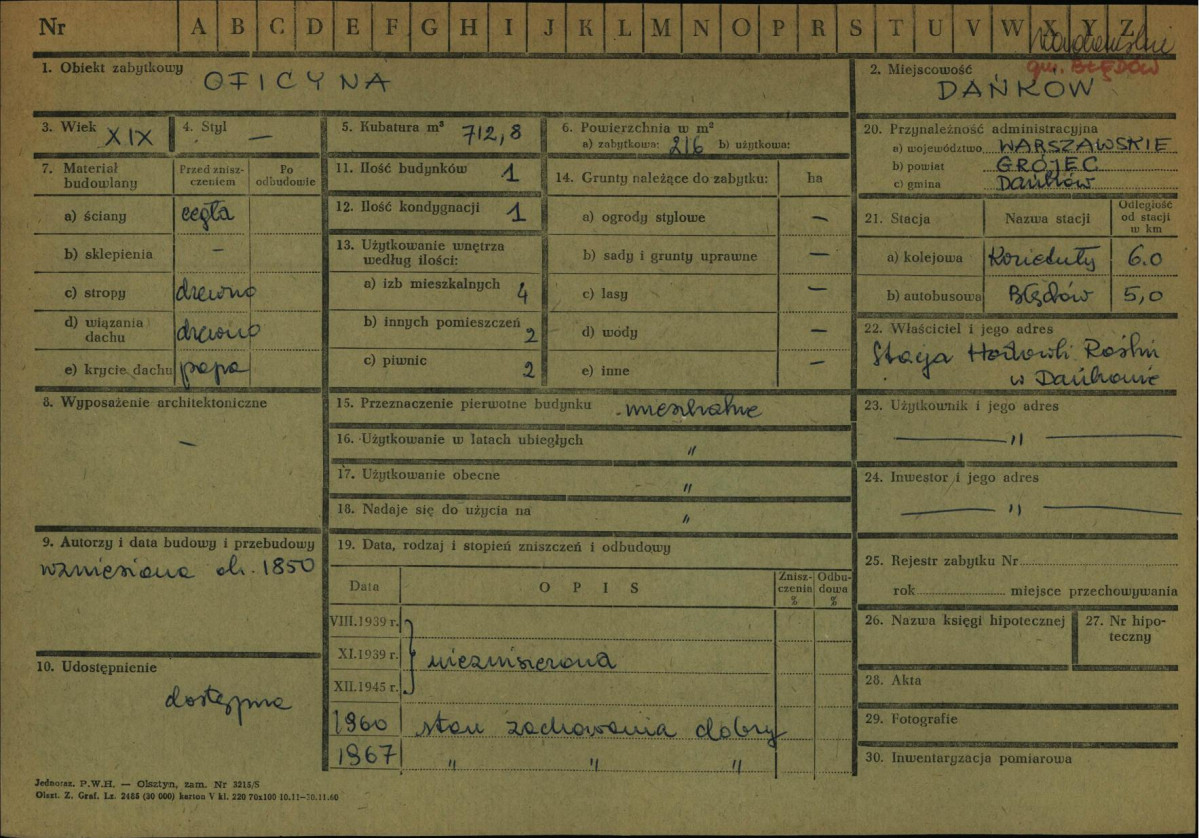 Nr A B C D E F G H I J K L M N O P R S T U V W X Y Z
gm. BŁĘDÓW
1. Obiekt zabytkowy OFICYNA
2. Miejscowość DAŃKÓW
3. Wiek XIX
4. Styl —
5. Kubatura m³ 712,8
6. Powierzchnia w m²
a) zabytkowa: 216 b) użytkowa:
7. Materiał budowlany
Przed zniszczeniem
Po odbudowie
a) ściany cegła
b) sklepienia –
c) stropy drewno
d) wiązania dachu drewno
e) krycie dachu papa
8. Wyposażenie architektoniczne
–
9. Autorzy i data budowy i przebudowy
wzniesiona ok. 1850
10. Udostępnienie
dostępna
11. Ilość budynków 1
12. Ilość kondygnacji 1
13. Użytkowanie wnętrza
według ilości:
a) izb mieszkalnych 4
b) innych pomieszczeń 2
c) piwnic 2
14. Grunty należące do zabytku: ha
a) ogrody stylowe —
b) sady i grunty uprawne —
c) lasy —
d) wody —
e) inne —
15. Przeznaczenie pierwotne budynku mieszkalne
16. Użytkowanie w latach ubiegłych "
17. Użytkowanie obecne "
18. Nadaje się do użycia na "
19. Data, rodzaj i stopień zniszczeń i odbudowy
Data OPIS Zniszczenia % Odbudowa %
VIII.1939 r.
XI.1939 r. niezniszczona
XII.1945 r.
1960 stan zachowania dobry
1967 " " "
20. Przynależność administracyjna
a) województwo WARSZAWSKIE
b) powiat GRÓJEC
c) gmina Dańków
21. Stacja Nazwa stacji Odległość od stacji w km
a) kolejowa Kozietuły 6.0
b) autobusowa Błędów 5,0
22. Właściciel i jego adres
Stacja Hodowli Roślin
w Dańkowie
23. Użytkownik i jego adres
— " —
24. Inwestor i jego adres
— " —
25. Rejestr zabytku Nr
rok miejsce przechowywania
26. Nazwa księgi hipotecznej
27. Nr hipoteczny
28. Akta
29. Fotografie
30. Inwentaryzacja pomiarowa
Jednoraz. P.W.H. — Olsztyn, zam. Nr 3215/S
Olszt. Z. Graf. Lz. 2485 (30 000) karton V kl. 220 70x100 10.11—30.11.60